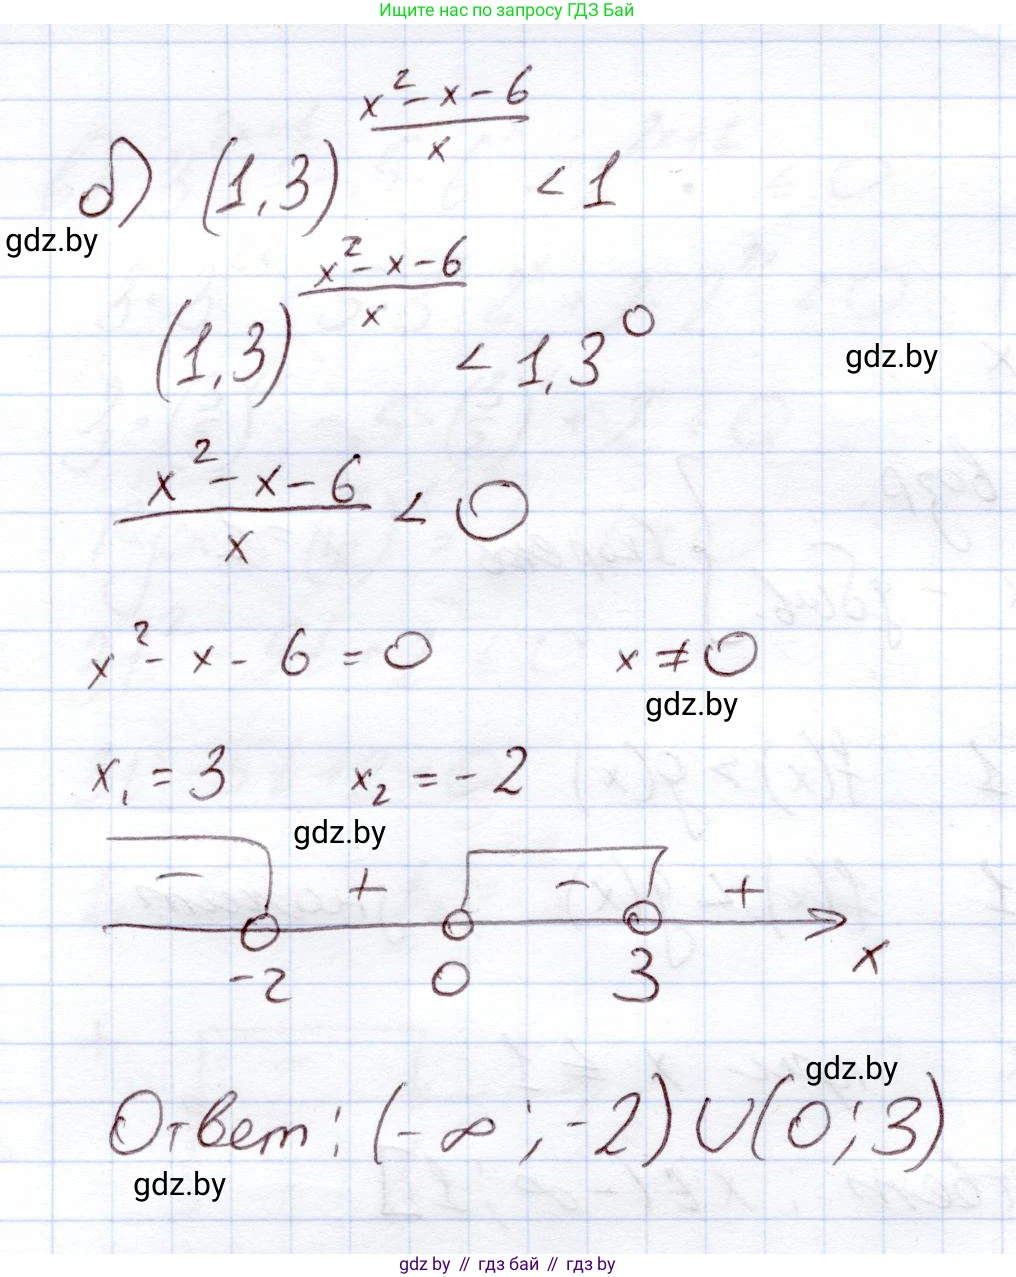 Ищите нас по запросу ГДЗ Бай
б) (1,3)^((x²-x-6)/x) < 1
gdz.by
(1,3)^((x²-x-6)/x) < 1,3⁰
gdz.by
(x²-x-6)/x < 0
x²-x-6=0 x≠0
gdz.by
x₁=3 x₂=-2
gdz.by
- + - +
-2 0 3 x
gdz.by
Ответ: (-∞;-2)∪(0;3)
gdz.by
gdz.by // гдз бай // гдз by